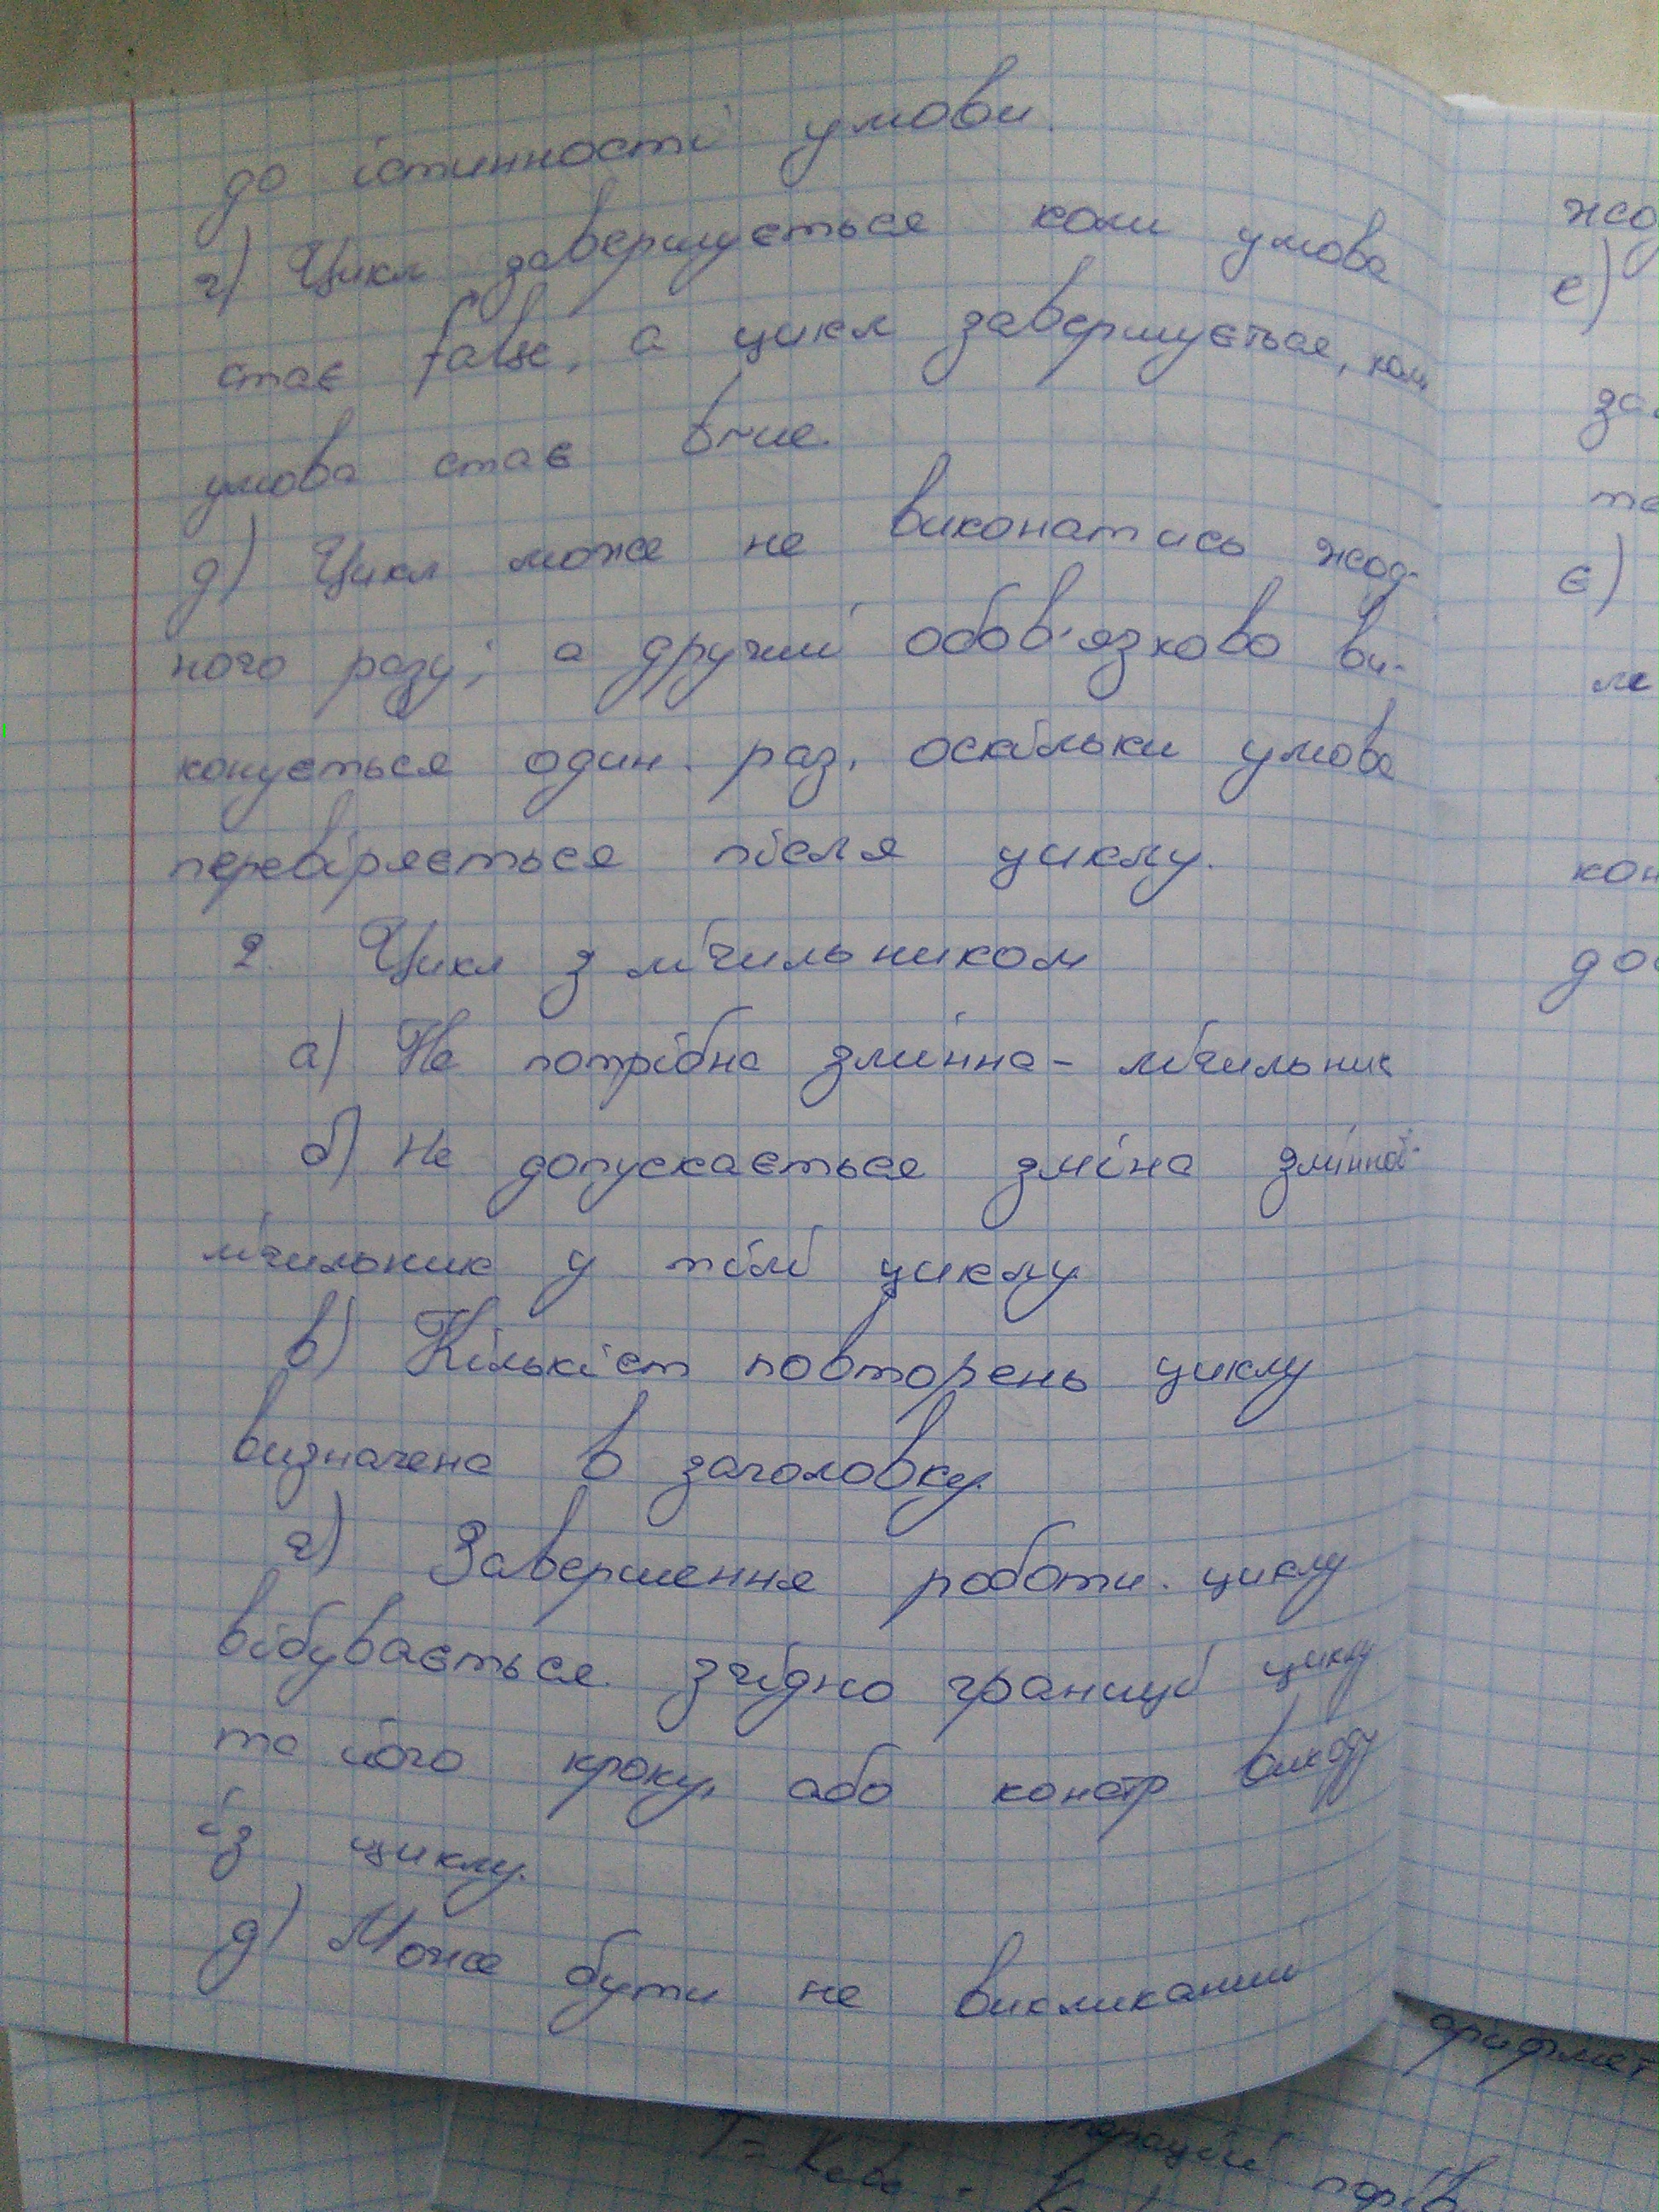 до істинності умови.
г) Цикл завершується коли умова
стає false, а цикл завершується, коли
умова стає true.
д) Цикл може не виконатись жод-
ного разу; а другий обов'язково ви-
конується один раз, оскільки умова
перевіряється після циклу.
2. Цикл з лічильником
а) Не потрібна змінна - лічильник
б) Не допускається зміна змінної-
лічильник у тілі циклу
в) Кількіст повторень циклу
визначена в заголовку.
г) Завершення роботи циклу
вібувається згідно границь циклу
та його кроку, або констр виходу
із циклу.
д) Може бути не викликаний
жод
е)
за
та
є)
ле
кон
дов
арифмет
T =
порів